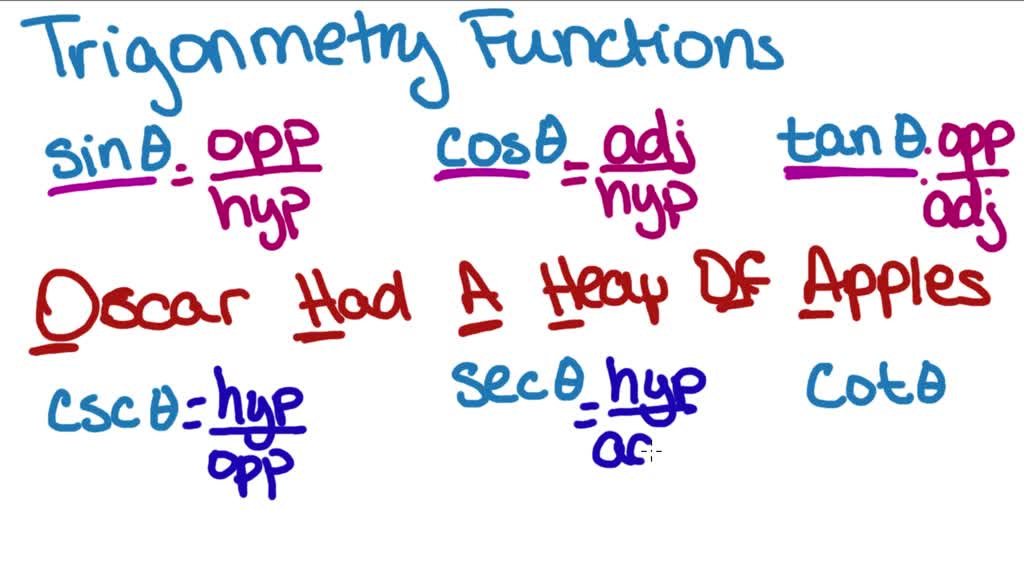 Trigonmetry Functions
sinθ = opp/hyp cosθ = adj/hyp tanθ : opp/adj
Oscar Had A Heap Of Apples
cscθ = hyp/opp secθ = hyp/ad cotθ